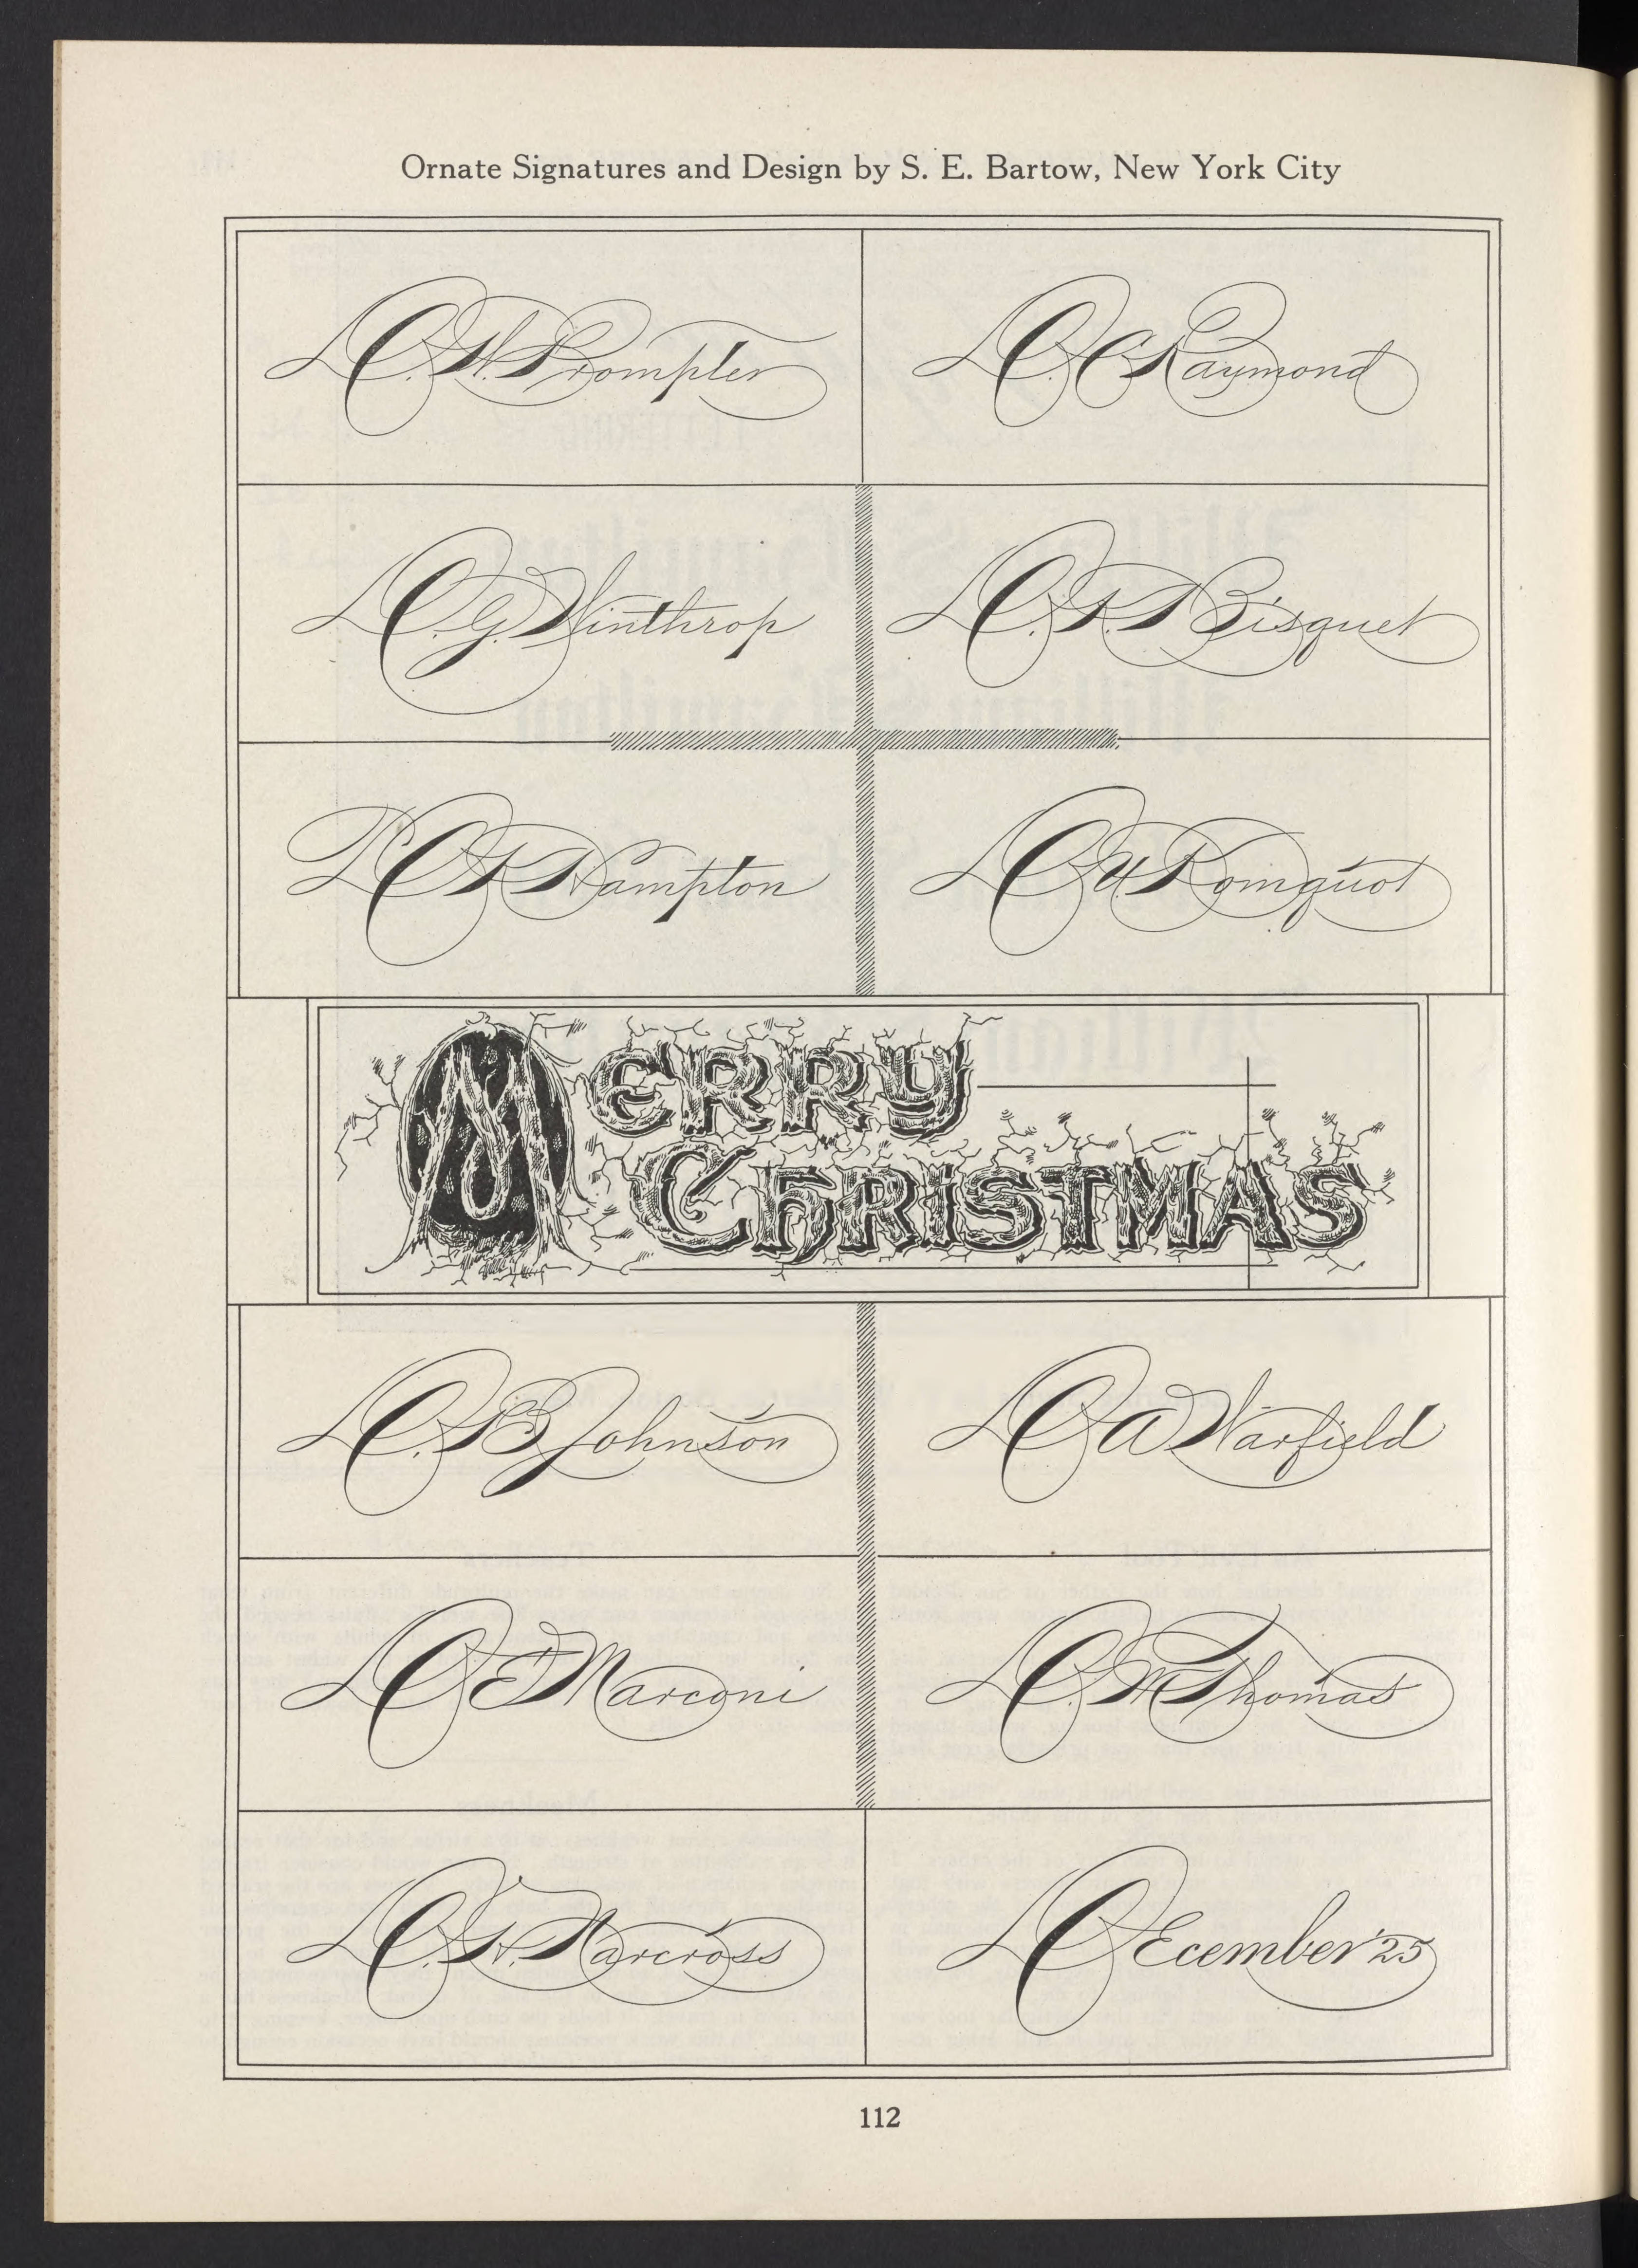 Ornate Signatures and Design by S. E. Bartow, New York City
D.
D. C Raymond
D. G. Winthrop
D. Bisquet
D Hampton
D U. Romquot
MERRY
CHRISTMAS
D. B Johnson
D A Warfield
D E Marconi
D. M Thomas
D. H. Narcross
DEcember '25
112